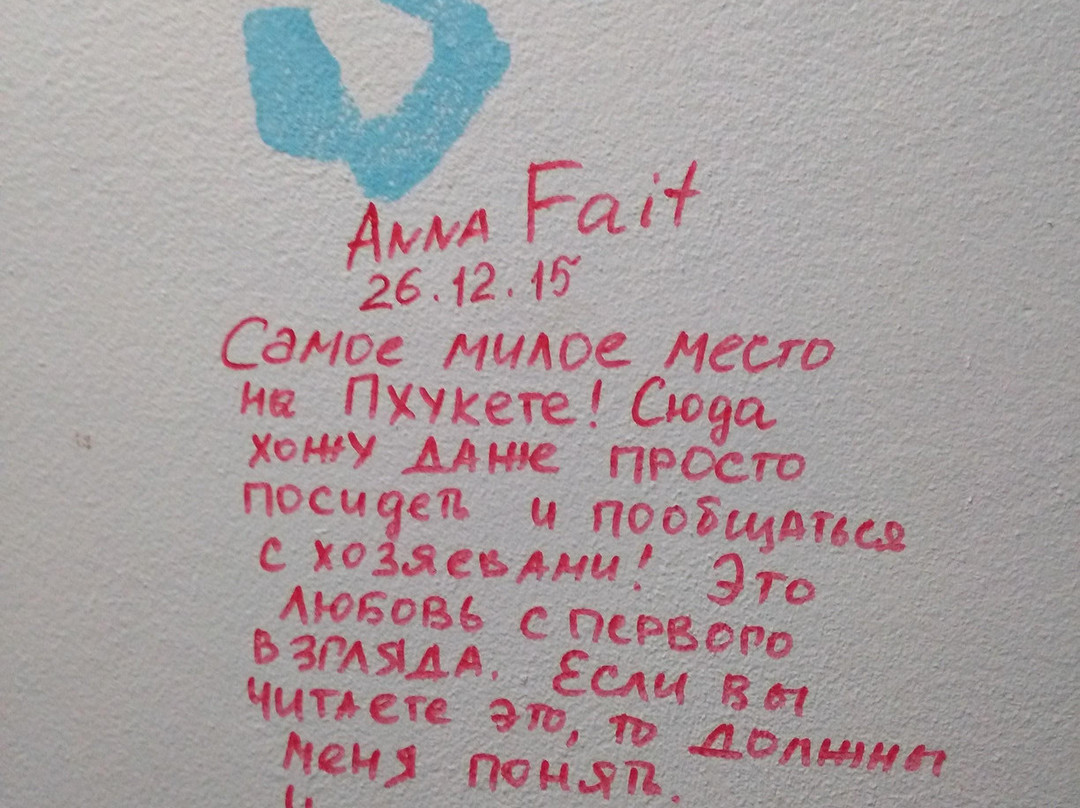 ANNA Fait
26.12.15
Самое милое место
на Пхукете! Сюда
хожу даже просто
посидеть и пообщаться
с хозяевами! Это
любовь с первого
взгляда. Если вы
читаете это, то должны
меня понять.